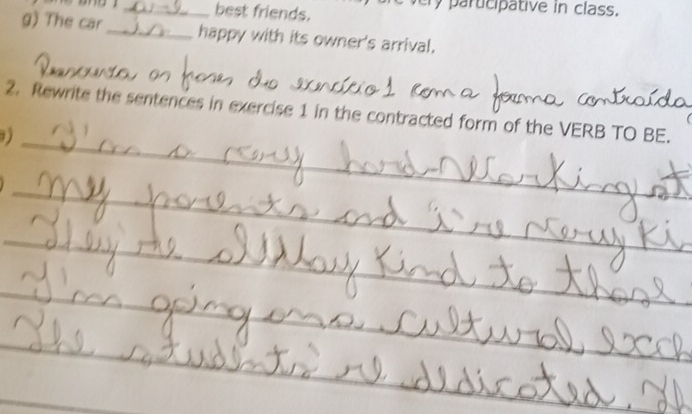 are best friends.
very participative in class.
g) The car is happy with its owner's arrival.
on frases do exercício 1 com a forma contraída
2. Rewrite the sentences in exercise 1 in the contracted form of the VERB TO BE.
I'm a very hard-working st
My parents and I're very ki
They're always kind to those
I'm going on a cultural exch
The students're dedicated. Th